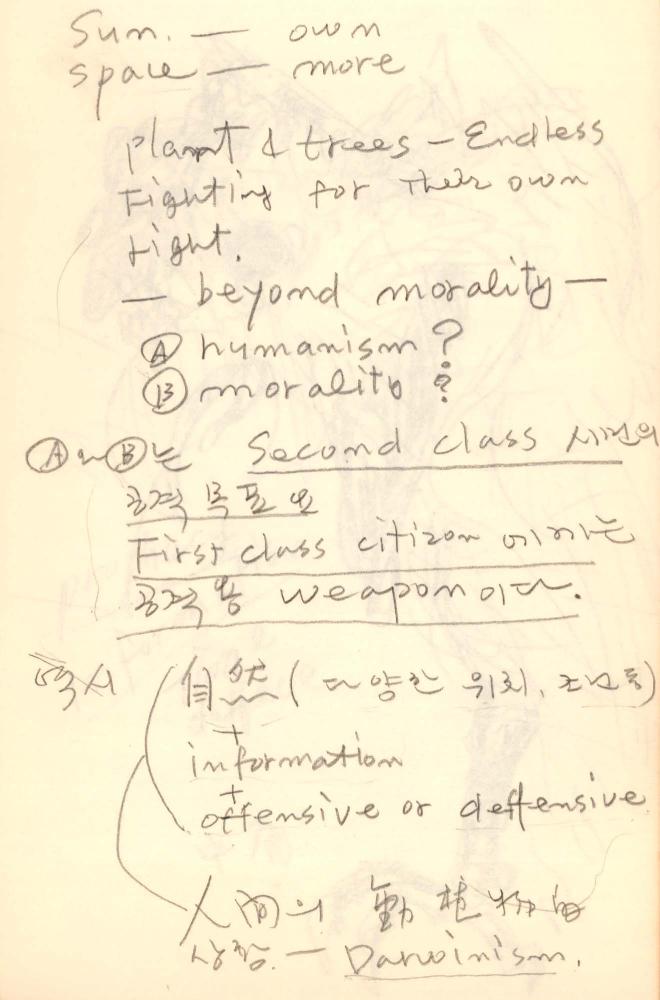 Sun. — own
space — more
plant & trees — Endless
Fighting for Their own
right.
— beyond morality —
Ⓐ humanism?
Ⓑ morality?
Ⓐ와 Ⓑ는 Second class 시민의
공격 목표요
First class citizen 에게는
공격용 weapon이다.
역시 自然(다양한 위치, 조건등)
+
information
+
offensive or deffensive
人間의 動植物的
상황 — Darwinism.